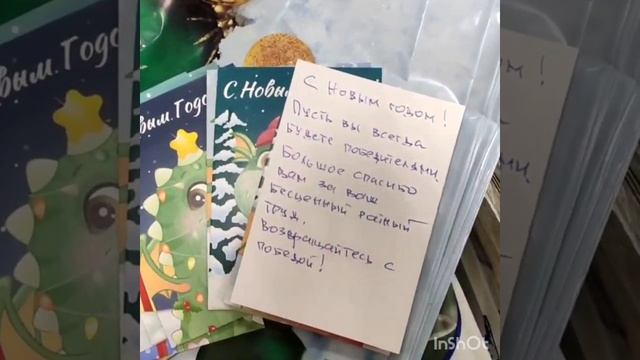 С Новым годом!
Пусть вы всегда
будете победителями.
Большое спасибо
вам за ваш
бесценный ратный
труд.
Возвращайтесь с
победой!
С Новы
вым. Годо
вым. Годом
InShOt